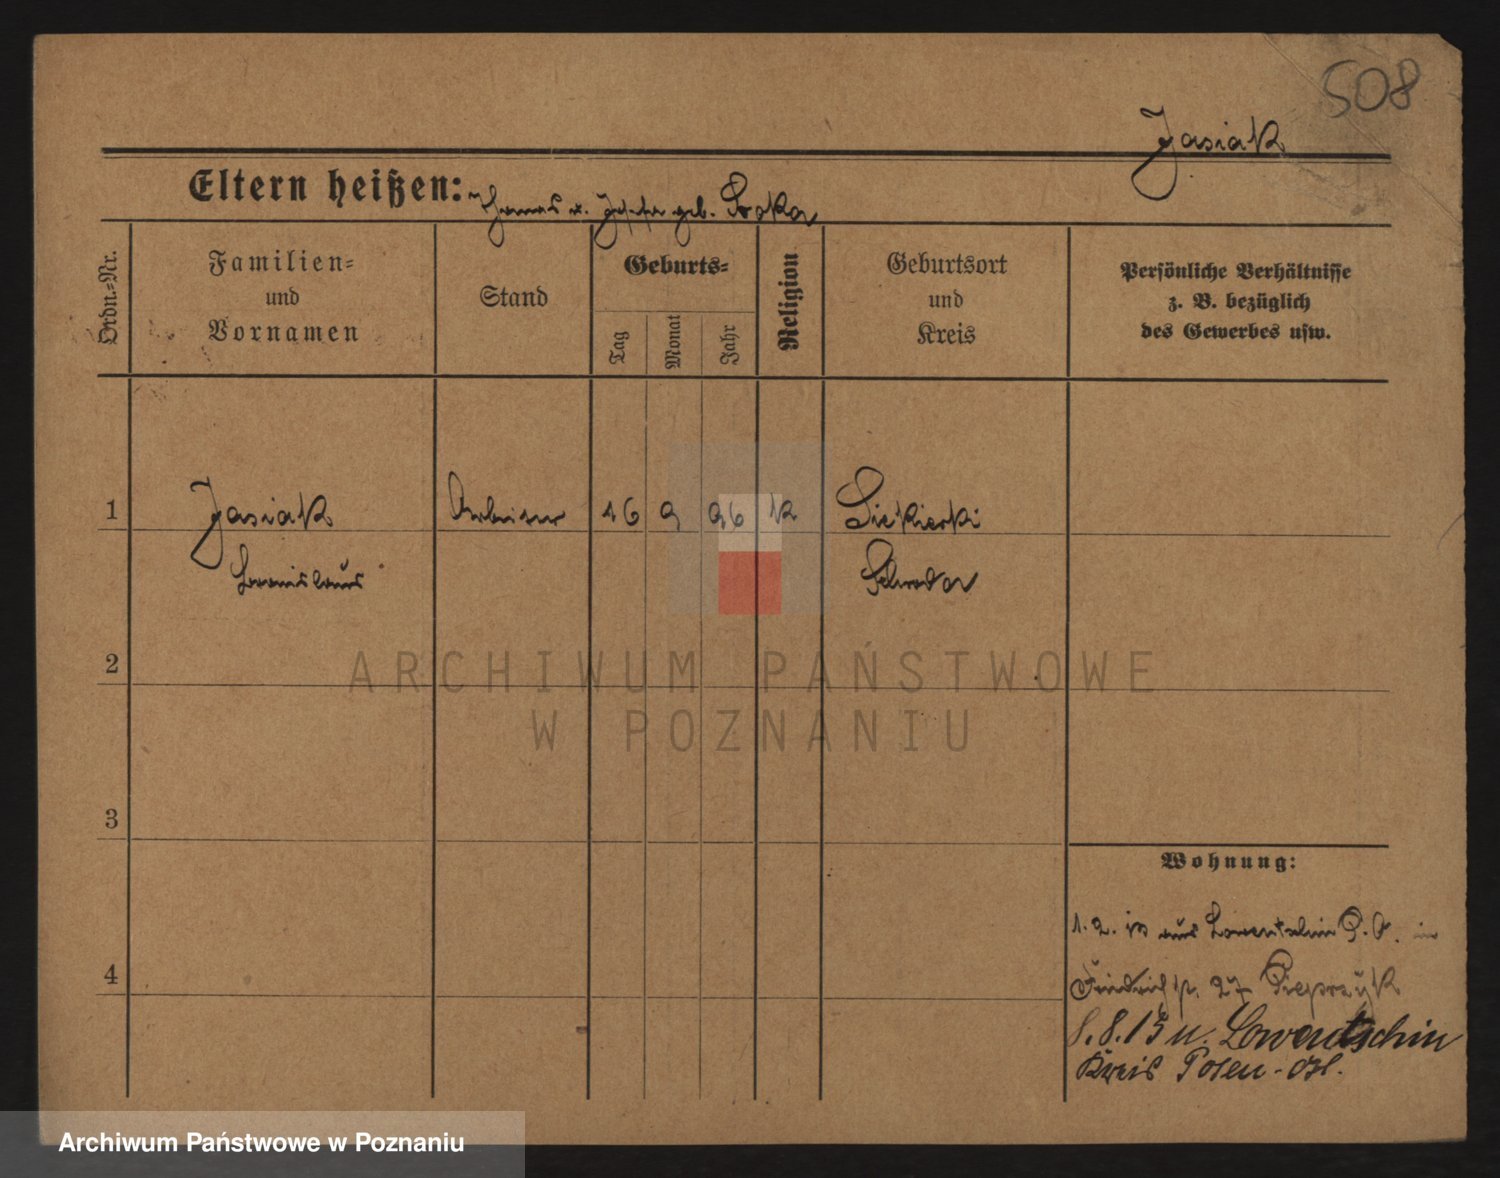 508
Jasiak
Eltern heißen: Thomas u. Josefa geb. Sroka
Ordn.-Nr.
Familien-
und
Vornamen
Stand
Geburts-
Tag
Monat
Jahr
Religion
Geburtsort
und
Kreis
Persönliche Verhältnisse
z. B. bezüglich
des Gewerbes usw.
1 Jasiak Arbeiter 16 9 96 k Siekierki
Stanislaus Schroda
2
3
4
Wohnung:
1. 2. 13 aus Lowentschin P. O. in
Friedrichstr. 27 Pieprzyk
8. 8. 13 n. Lowentschin
Kreis Posen-Ost.
ARCHIWUM PAŃSTWOWE
W POZNANIU
Archiwum Państwowe w Poznaniu